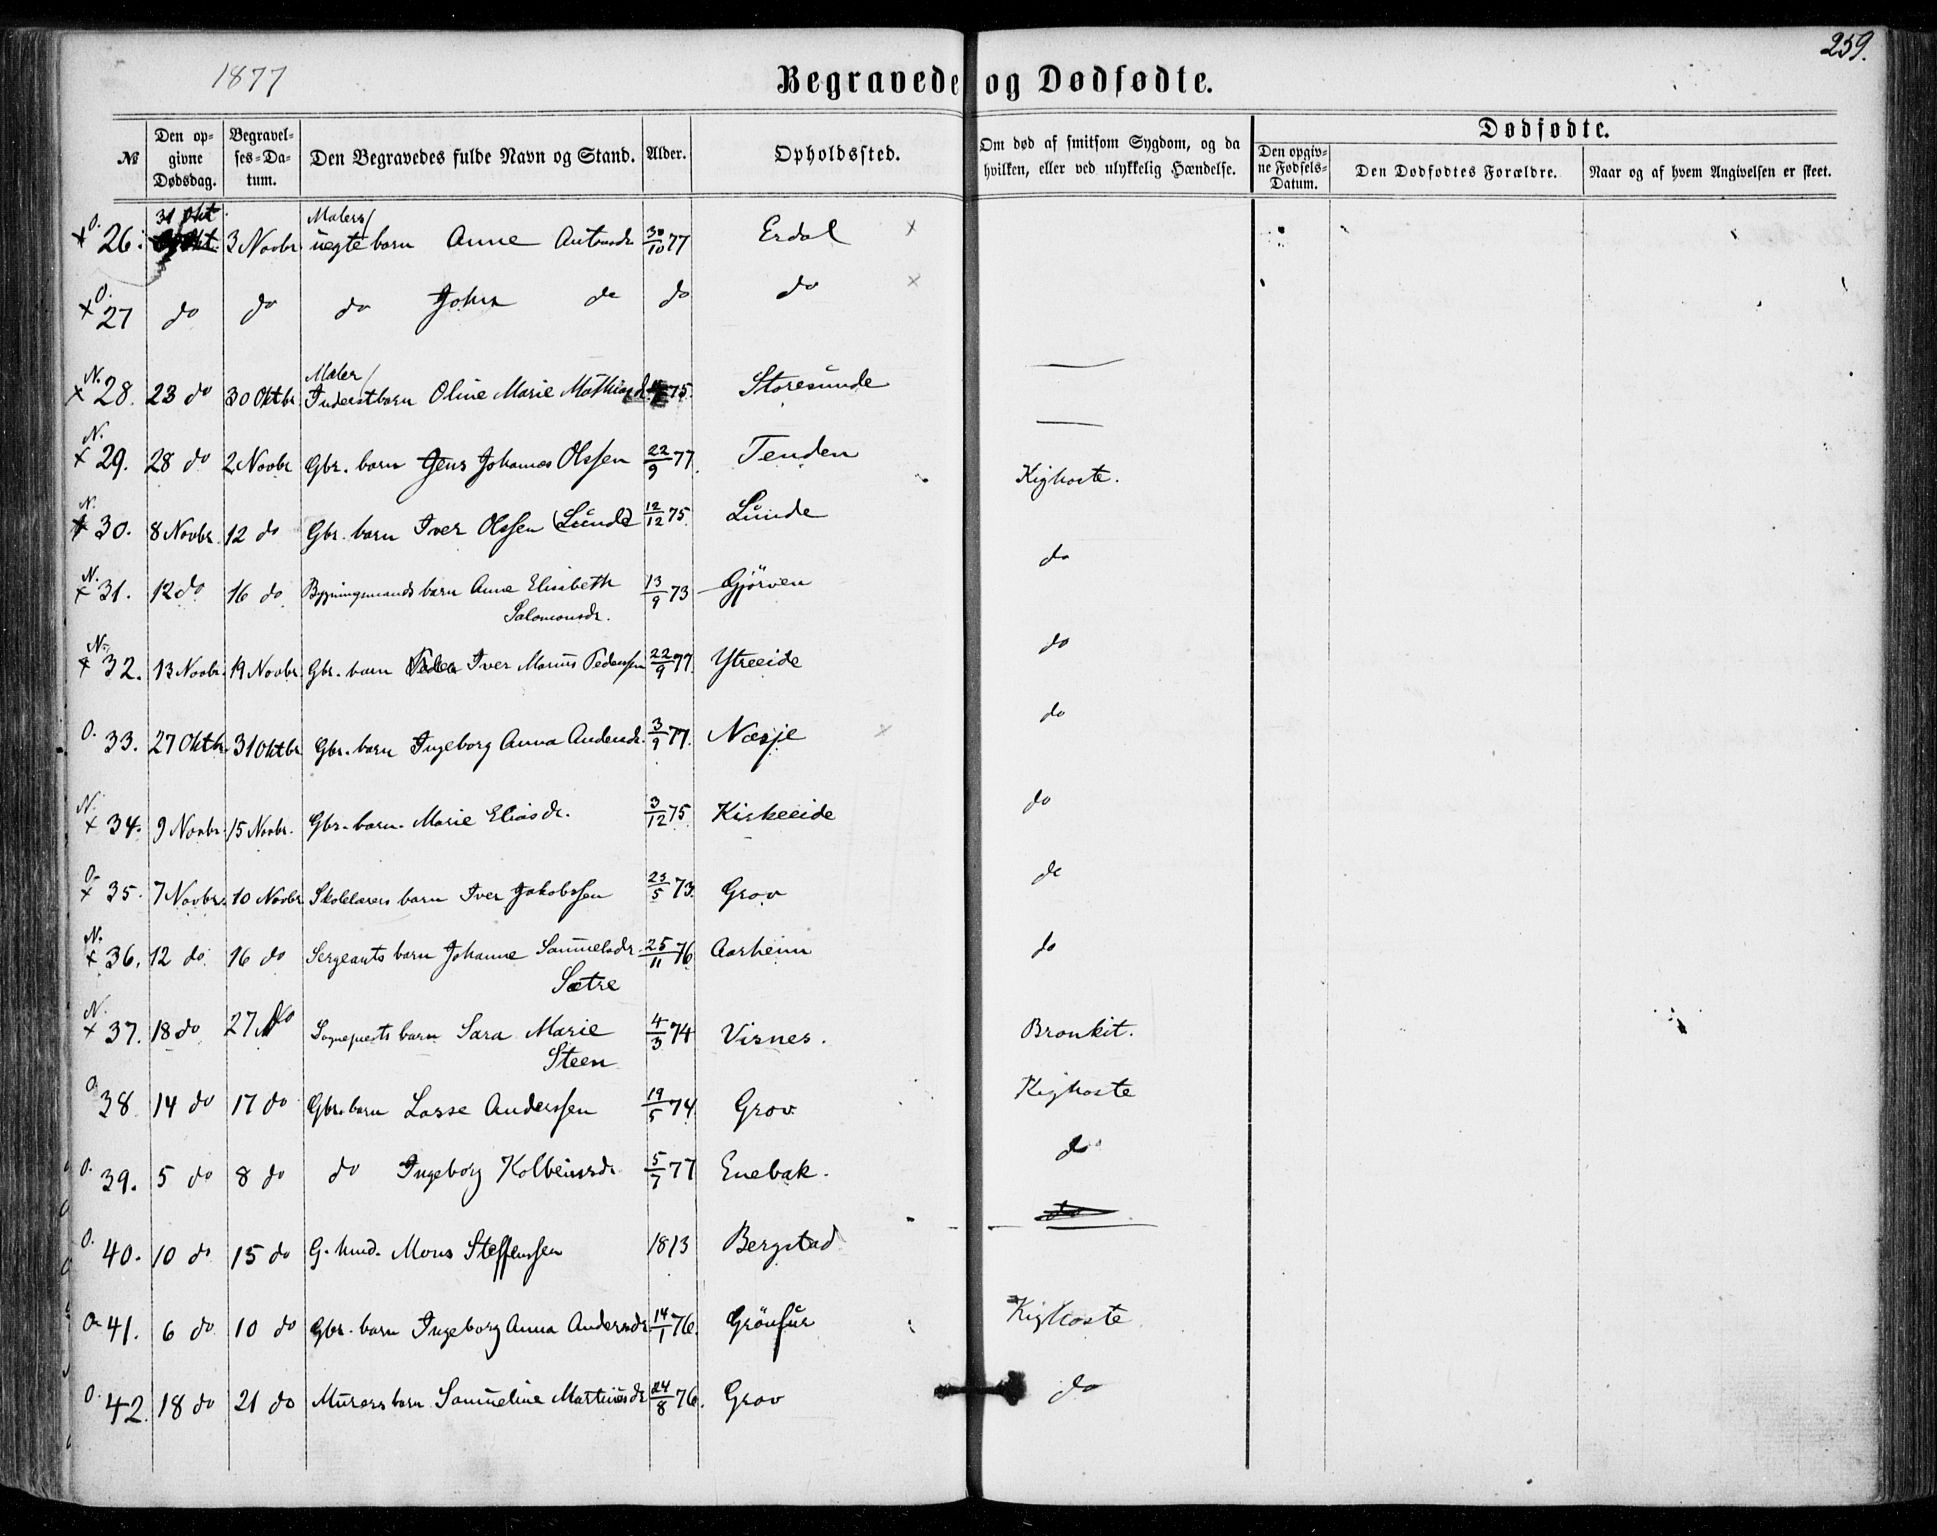 259.
1877
Begravede og Dødfødte.
№ | Den opgivne Dødsdag. | Begravelses-Datum. | Den Begravedes fulde Navn og Stand. | Alder. | Opholdssted. | Om død af smitsom Sygdom, og da hvilken, eller ved ulykkelig Hændelse. | Dødfødte.
Den opgivne Fødsels-Datum. | Den Dødfødtes Forældre. | Naar og af hvem Angivelsen er skeet.
x O. 26. | 31 Okt | 3 Novbr | Malers/ uegte barn Anne | 30/10 77 | Erdal x
x O. 27 | do | do | do John do | do | do x
x N. 28. | 23 do | 30 Oktbr | Maler/ Inderstbarn Oline Marie Mathiasd. | 75. | Storesunde | —
x N. 29. | 28 do | 2 Novbr | Gbr. barn Jens Johannes Olssen | 22/9 77. | Tenden | —
x N. 30. | 8 Novbr. | 12 do | Gbr. barn Iver Olssen (Lunde) | 12/12 75. | Lunde | Kighoste.
x N. 31. | 12 do | 16 do | Bygningsmands barn Anne Elisabeth Salomonsdr. | 13/9 73 | Gjörven | do
x N. 32. | 13 Novbr. | 19 Novbr. | Gbr. barn Iver Marius Pederssen | 22/9 77. | Ytreeide | do
O. 33. | 27 Oktbr. | 31 Oktbr | Gbr. barn Ingeborg Anna Andersdr. | 3/9 77. | Nesje x | do
x N. 34. | 9 Novbr. | 15 Novbr. | Gbr. barn. Marie Eliasdr. | 3/12 75 | Kirkeeide | do
x O. 35. | 7 Novbr. | 10 Novbr | Skolelærers barn Iver Jakobssen | 23/5 73. | Grov | do
x N. 36. | 12 do | 16 do | Sergeants barn Johanne Samuelsdr. Sætre | 25/11 76 | Aarheim | do
x N. 37. | 18 do | 27 do | Sognepræsts barn Sara Marie Steen | 4/3 74 | Visnes. | Bronkit.
O. 38. | 14 do | 17 do | Gbr. barn Lasse Anderssen | 19/5 74. | Grov | Kighoste
O. 39. | 5 do | 8 do | do Ingeborg Kolbeinsdr. | 5/7 77 | Enebak. | do
O. 40. | 10 do | 15 do | G. kmd. Mons Steffenssen | 1813 | Bergstad | —
O. 41. | 6 do | 10 do | Gbr. barn Ingeborg Anna Andersdr. | 14/1 76. | Grönfur | Kighoste
O. 42. | 18 do | 21 do | Murers barn Samueline Martinusdr | 24/8 76. | Grov | do